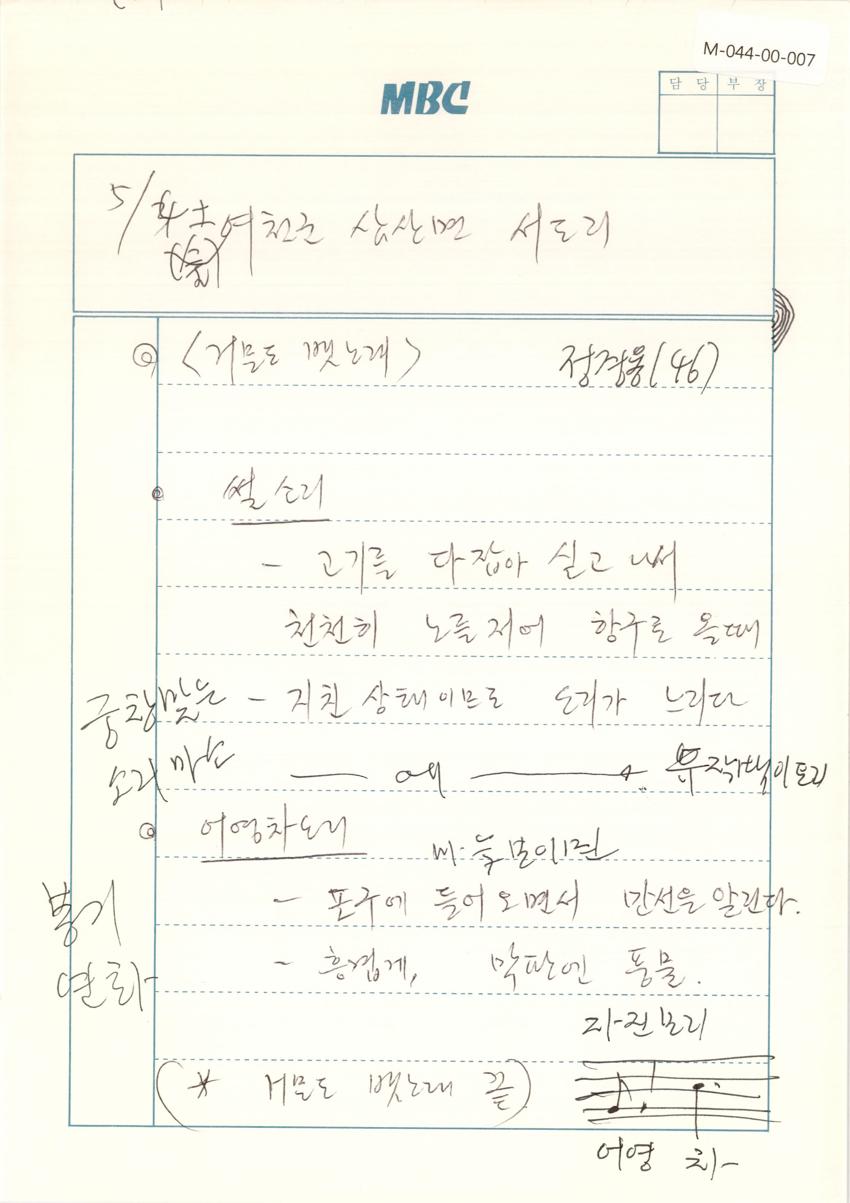 M-044-00-007
담 당 부 장
MBC
5/
여천군 삼산면 서도리
<거문도 뱃노래> 정경용(46)
썰소리
- 고기를 다 잡아 싣고 나서
천천히 노를 저어 항구로 올때
- 지친 상태이므로 소리가 느리다
중창 받는
소리 마쏘
에
어영차소리
보이면
- 포구에 들어오면서 만선을 알린다.
봉기
- 흥겹게, 막판엔 풍물.
(* 거문도 뱃노래 끝)
어영 차-